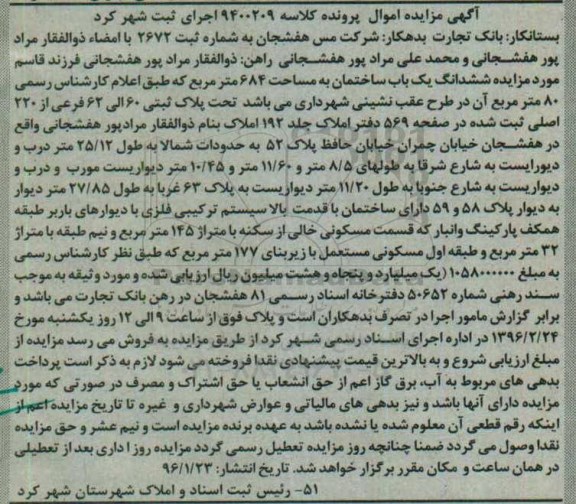 آگهی مزایده اموال پرونده کلاسه ۹۴۰۰۲۰۹ اجرای ثبت شهر کرد
بستانکار: بانک تجارت بدهکار: شرکت مس هفشجان به شماره ثبت ۲۶۷۲ با امضاء ذوالفقار مراد
پور هفشجانی و محمد علی مراد پور هفشجانی راهن: ذوالفقار مراد پور هفشجانی فرزند قاسم
مورد مزایده ششدانگ یک باب ساختمان به مساحت ۶۸۴ متر مربع که طبق اعلام کارشناس رسمی
۸۰ متر مربع آن در طرح عقب نشینی شهرداری می باشد تحت پلاک ثبتی ۶۰ الی ۶۲ فرعی از ۲۲۰
اصلی ثبت شده در صفحه ۵۶۹ دفتر املاک جلد ۱۹۲ املاک بنام ذوالفقار مرادپور هفشجانی واقع
در هفشجان خیابان چمران خیابان حافظ پلاک ۵۲ به حدودات شمالا به طول ۲۵/۱۲ متر درب و
دیواریست به شارع شرقا به طولهای ۸/۵ متر و ۱۱/۶۰ متر و ۱۰/۴۵ متر دیواریست مورب و درب و
دیواریست به شارع جنوبا به طول ۱۱/۲۰ متر دیواریست به پلاک ۶۳ غربا به طول ۲۷/۸۵ متر دیوار
به دیوار پلاک ۵۸ و ۵۹ دارای ساختمان با قدمت بالا سیستم ترکیبی فلزی با دیوارهای باربر طبقه
همکف پارکینگ وانبار که قسمت مسکونی خالی از سکنه با متراژ ۱۴۵ متر مربع و نیم طبقه با متراژ
۳۲ متر مربع و طبقه اول مسکونی مستعمل با زیربنای ۱۷۷ متر مربع که طبق نظر کارشناس رسمی
به مبلغ ۱۰۵۸۰۰۰۰۰۰ (یک میلیارد و پنجاه و هشت میلیون ریال ارزیابی شده و مورد وثیقه به موجب
سند رهنی شماره ۵۰۶۵۲ دفترخانه اسناد رسمی ۸۱ هفشجان در رهن بانک تجارت می باشد و
برابر گزارش مامور اجرا در تصرف بدهکاران است و پلاک فوق از ساعت ۹ الی ۱۲ روز یکشنبه مورخ
۱۳۹۶/۲/۲۴ در اداره اجرای اسناد رسمی شهر کرد از طریق مزایده به فروش می رسد مزایده از
مبلغ ارزیابی شروع و به بالاترین قیمت پیشنهادی نقدا فروخته می شود لازم به ذکر است پرداخت
بدهی های مربوط به آب، برق گاز اعم از حق انشعاب یا حق اشتراک و مصرف در صورتی که مورد
مزایده دارای آنها باشد و نیز بدهی های مالیاتی و عوارض شهرداری و غیره تا تاریخ مزایده اعم از
اینکه رقم قطعی آن معلوم شده یا نشده باشد به عهده برنده مزایده است و نیم عشر و حق مزایده
نقدا وصول می گردد ضمنا چنانچه روز مزایده تعطیل رسمی گردد مزایده روز اداری بعد از تعطیلی
در همان ساعت و مکان مقرر برگزار خواهد شد. تاریخ انتشار: ۹۶/۱/۲۳
۵۱- رئیس ثبت اسناد و املاک شهرستان شهر کرد